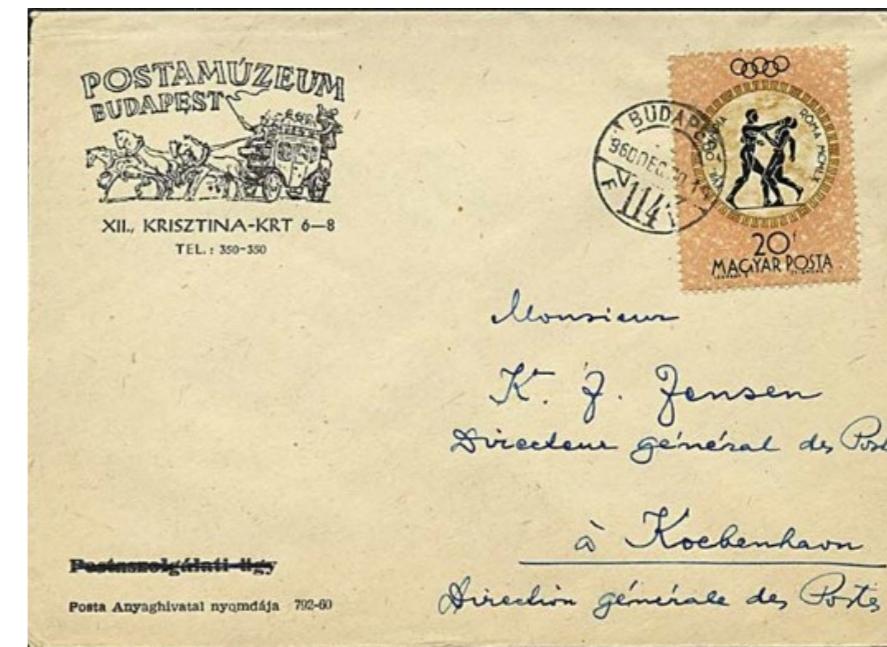 POSTAMÚZEUM
BUDAPEST
XII., KRISZTINA-KRT 6—8
TEL.: 350-350
BUDAPEST
960 DEC
114
ROMA MCMLX
20f
MAGYAR POSTA
Monsieur
K. J. Jensen
Directeur général des Post
à Koebenhavn
Direction générale des Postes
Postaszolgálati ügy
Posta Anyaghivatal nyomdája 792-60